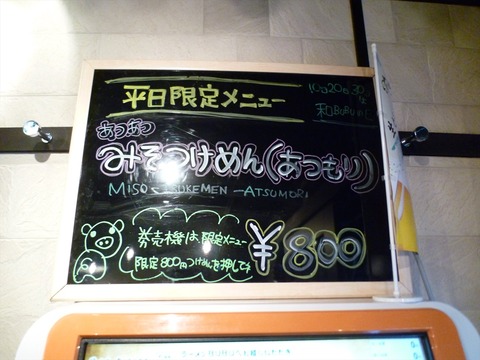 平日限定メニュー
あつあつ
みそつけめん(あつもり)
MISO-TSUKEMEN-ATSUMORI
券売機は限定メニュー
限定800円つけめんを押して下
¥800